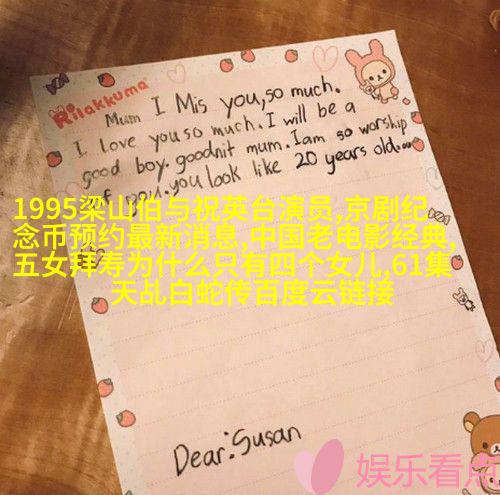 Rilakkuma
Mum I Mis you,so much.
I love you so much. I will be a
good boy. goodnit mum. Iam so worship
of you. you look like 20 years old.
1995梁山伯与祝英台演员,京剧纪
念币预约最新消息,中国老电影经典,
五女拜寿为什么只有四个女儿,61集
天乩白蛇传百度云链接
Dear:Susan
娱乐看点